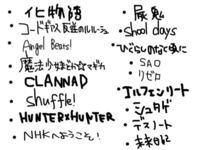 ・化物語
・コードギアス 反逆のルルーシュ
・Angel Beats!
・魔法少女まどか☆マギカ
・CLANNAD
・Shuffle!
・HUNTER×HUNTER
・NHKへようこそ!
・屍鬼
・Shool days
・ひぐらしのなく頃に
・SAO
・リゼロ
・エルフェンリート
・シュタゲ
・デスノート
・未来日記